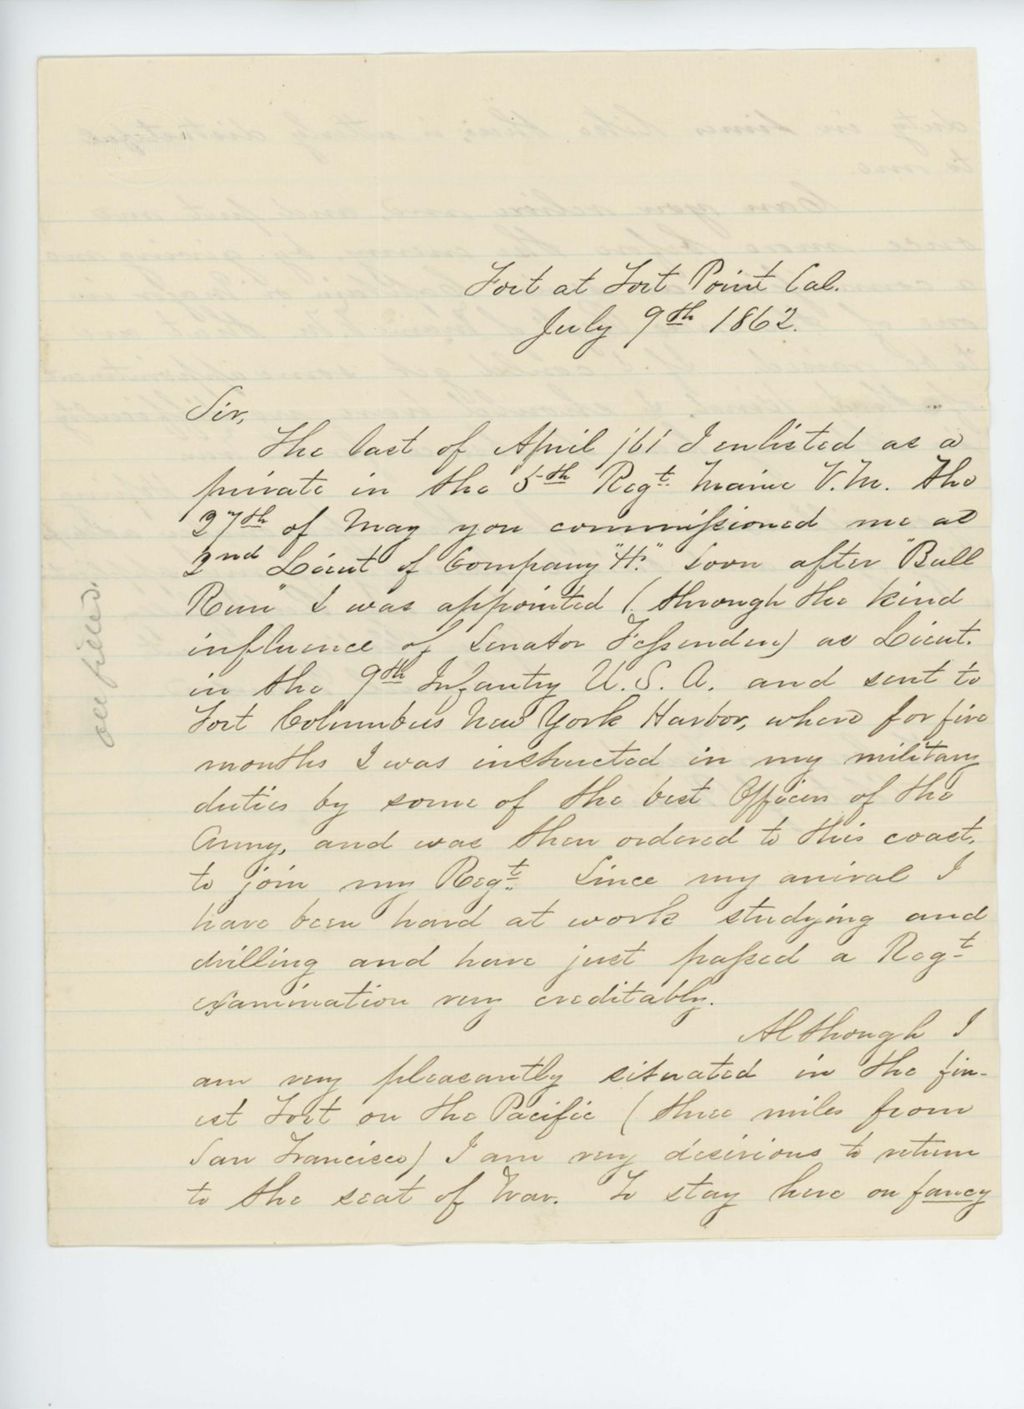 Fort at Fort Point Cal.
July 9th 1862.
Sir,
The last of April /61 I enlisted as a
private in the 5th Regt. Maine V.M. The
27th of May you commissioned me as
2nd Lieut of Company "H." Soon after "Bull
Run" I was appointed (through the kind
influence of Senator Fessenden) as Lieut.
in the 9th Infantry U.S.A. and sent to
Fort Columbus New York Harbor, where for five
months I was instructed in my military
duties by some of the best Officers of the
Army, and was then ordered to this coast,
to join my Regt. Since my arival I
have been hard at work studying and
drilling and have just passed a Regt
examination very creditably.
Although I
am very pleasantly situated in the fin-
est Fort on the Pacific (three miles from
San Francisco) I am very desirious to return
to the seat of War. To stay here on fancy
all filled.